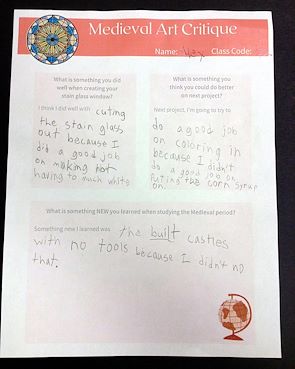 Medieval Art Critique
Name: Class Code:
What is something you did
well when creating your
stain glass window?
I think I did well with cuting
the stain glass
out because I
did a good job
on making not
having to much white
What is something you
think you could do better
on next project?
Next project, I'm going to try to
do a good job
on coloring in
because I didn't
do a good job on
puting the corn syrup
on.
What is something NEW you learned when studying the Medieval period?
Something new I learned was the built castles
with no tools because I didn't no
that.